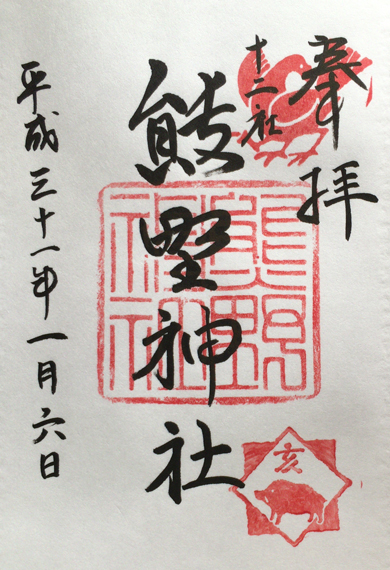 奉拝
十二社
熊野神社
平成三十一年一月六日
熊野
神社
亥